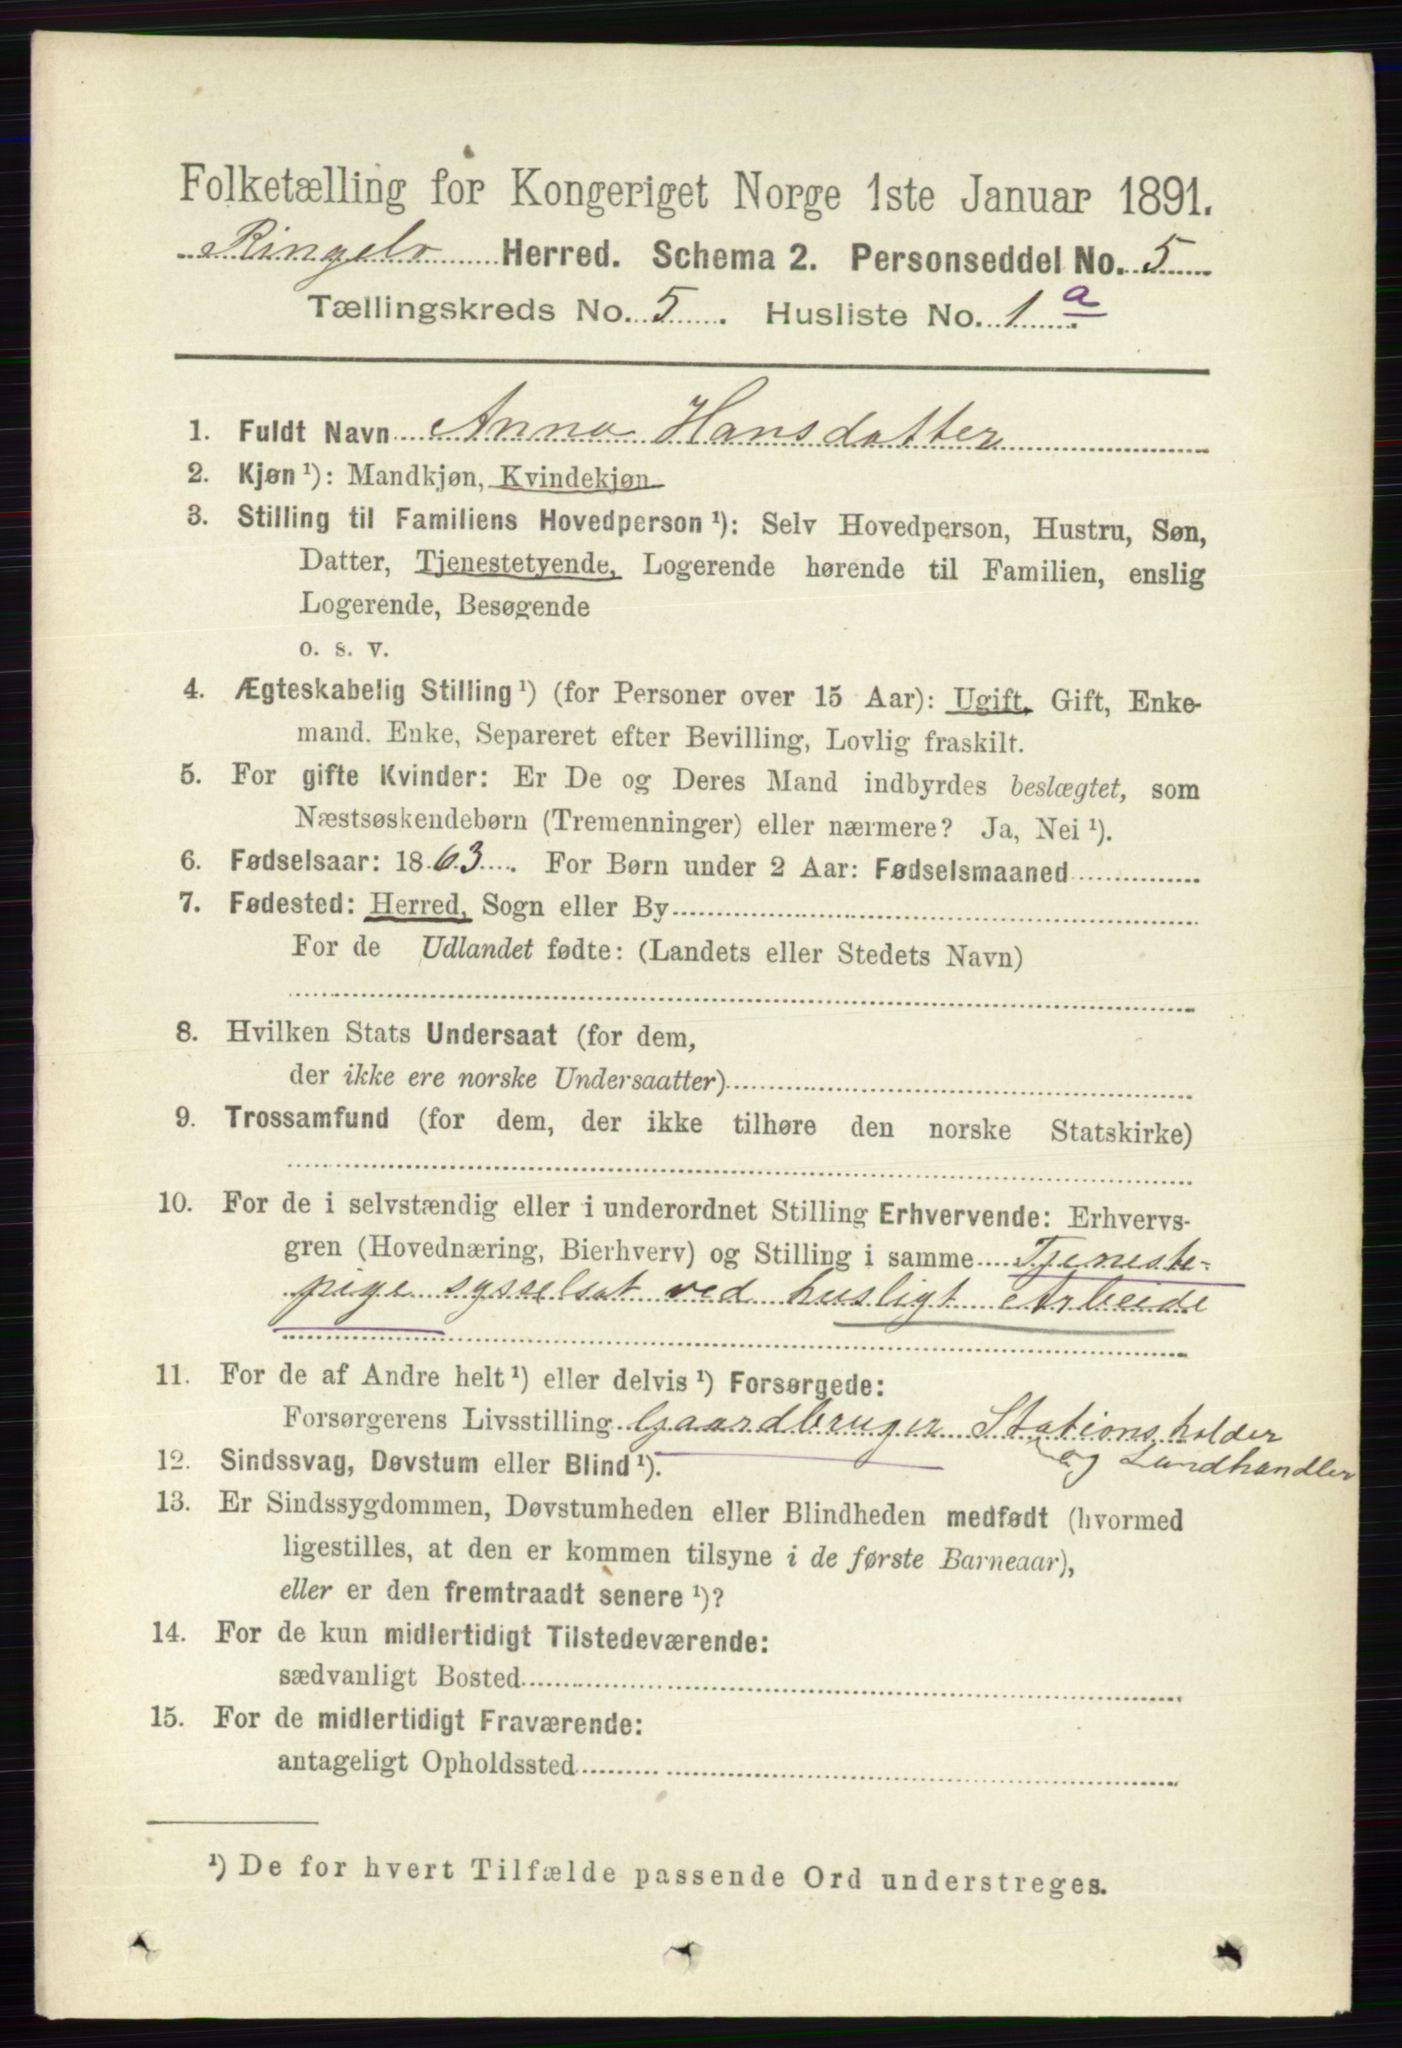 Folketælling for Kongeriget Norge 1ste Januar 1891.
Ringebo Herred. Schema 2. Personseddel No. 5
Tællingskreds No. 5. Husliste No. 1 a.
1. Fuldt Navn Anna Hansdatter
2. Kjøn ¹): Mandkjøn, Kvindekjøn
3. Stilling til Familiens Hovedperson ¹): Selv Hovedperson, Hustru, Søn,
Datter, Tjenestetyende, Logerende hørende til Familien, enslig
Logerende, Besøgende
o. s. v.
4. Ægteskabelig Stilling ¹) (for Personer over 15 Aar): Ugift, Gift, Enke-
mand. Enke, Separeret efter Bevilling, Lovlig fraskilt.
5. For gifte Kvinder: Er De og Deres Mand indbyrdes beslægtet, som
Næstsøskendebørn (Tremenninger) eller nærmere? Ja, Nei ¹).
6. Fødselsaar: 1863. For Børn under 2 Aar: Fødselsmaaned
7. Fødested: Herred, Sogn eller By
For de Udlandet fødte: (Landets eller Stedets Navn)
8. Hvilken Stats Undersaat (for dem,
der ikke ere norske Undersaatter)
9. Trossamfund (for dem, der ikke tilhøre den norske Statskirke)
10. For de i selvstændig eller i underordnet Stilling Erhvervende: Erhvervs-
gren (Hovednæring, Bierhverv) og Stilling i samme Tjeneste-
pige sysselsat ved husligt Arbeide
11. For de af Andre helt ¹) eller delvis ¹) Forsørgede:
Forsørgerens Livsstilling Gaardbruger Stationsholder
og Landhandler
12. Sindssvag, Døvstum eller Blind ¹).
13. Er Sindssygdommen, Døvstumheden eller Blindheden medfødt (hvormed
ligestilles, at den er kommen tilsyne i de første Barneaar),
eller er den fremtraadt senere ¹)?
14. For de kun midlertidigt Tilstedeværende:
sædvanligt Bosted
15. For de midlertidigt Fraværende:
antageligt Opholdssted
¹) De for hvert Tilfælde passende Ord understreges.